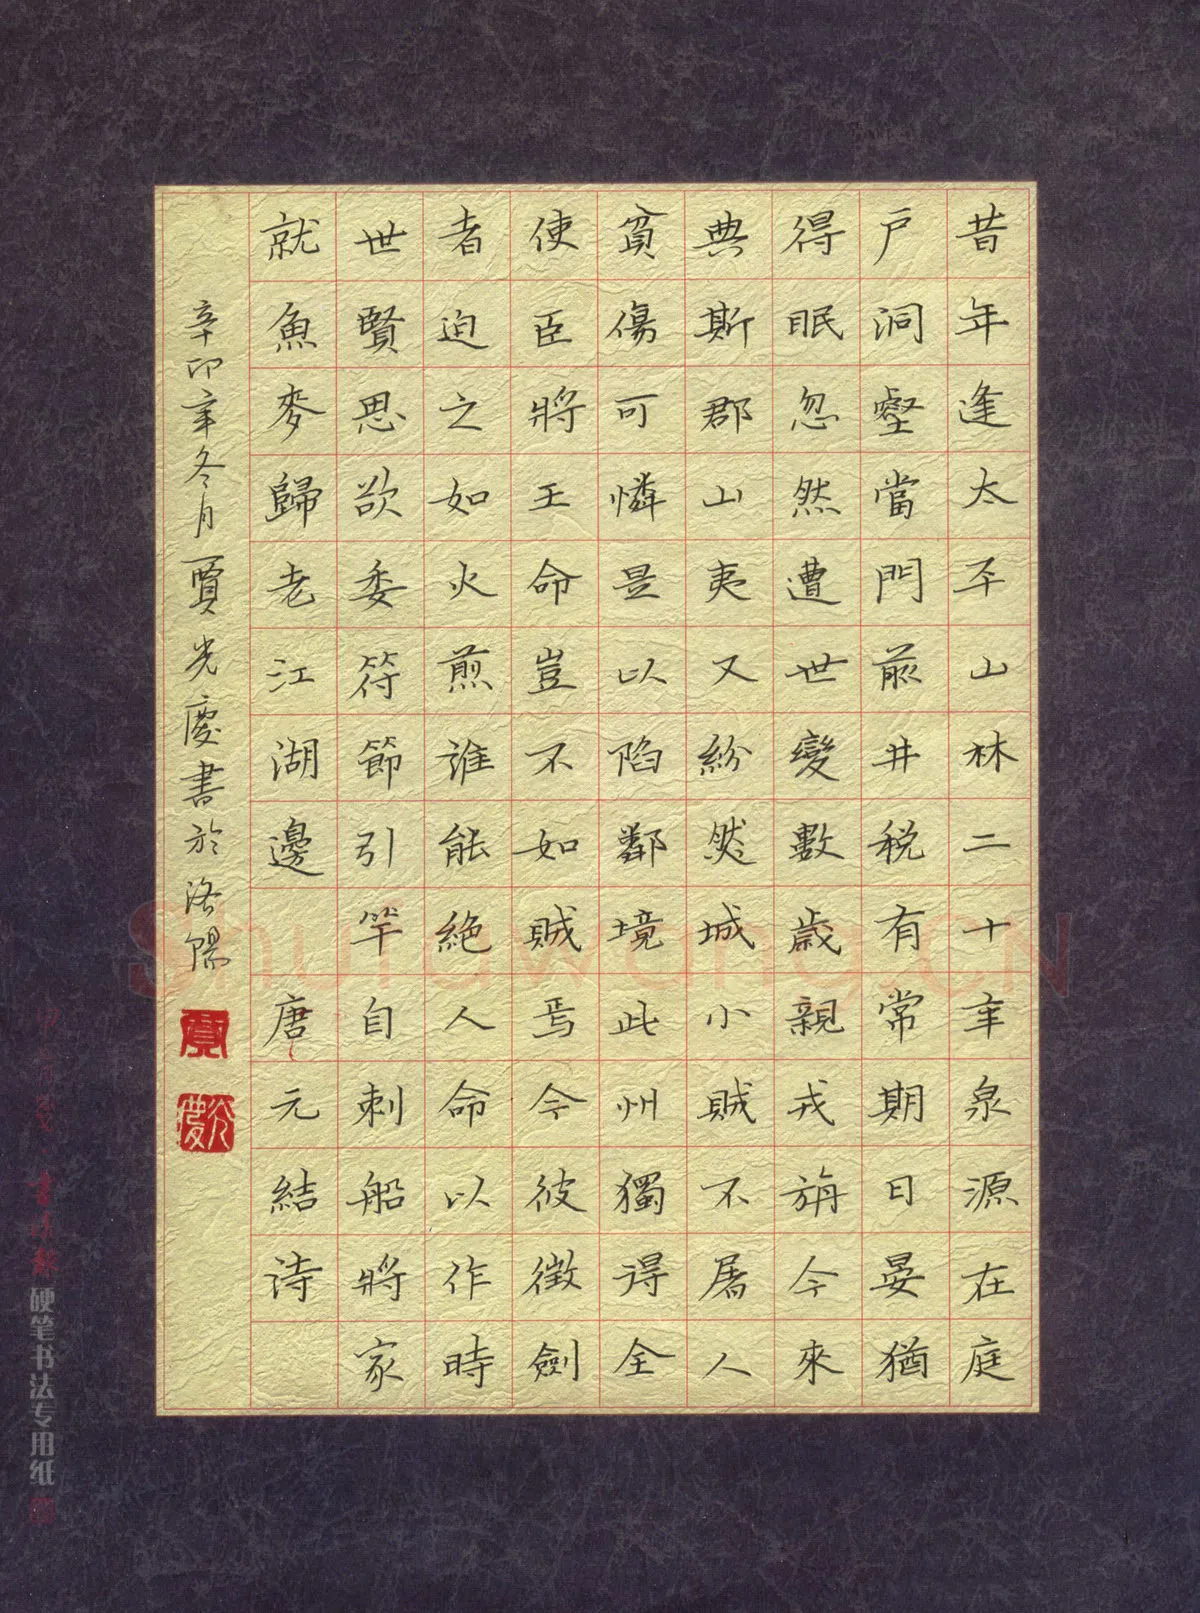 昔年逢太平山林二十年泉源在庭
戶洞壑當門前井税有常期日晏猶
得眠忽然遭世變數歲親戎旃今來
典斯郡山夷又紛然城小賊不屠人
貧傷可憐是以陷鄰境此州獨得全
使臣將王命豈不如賊焉今彼徵劍
者迫之如火煎誰能絕人命以作時
世賢思欲委符節引竿自刺船將家
就魚麥歸老江湖邊 唐元結诗
辛卯年冬月賈光慶書於洛陽
硬笔书法专用纸
Shufawang.CN